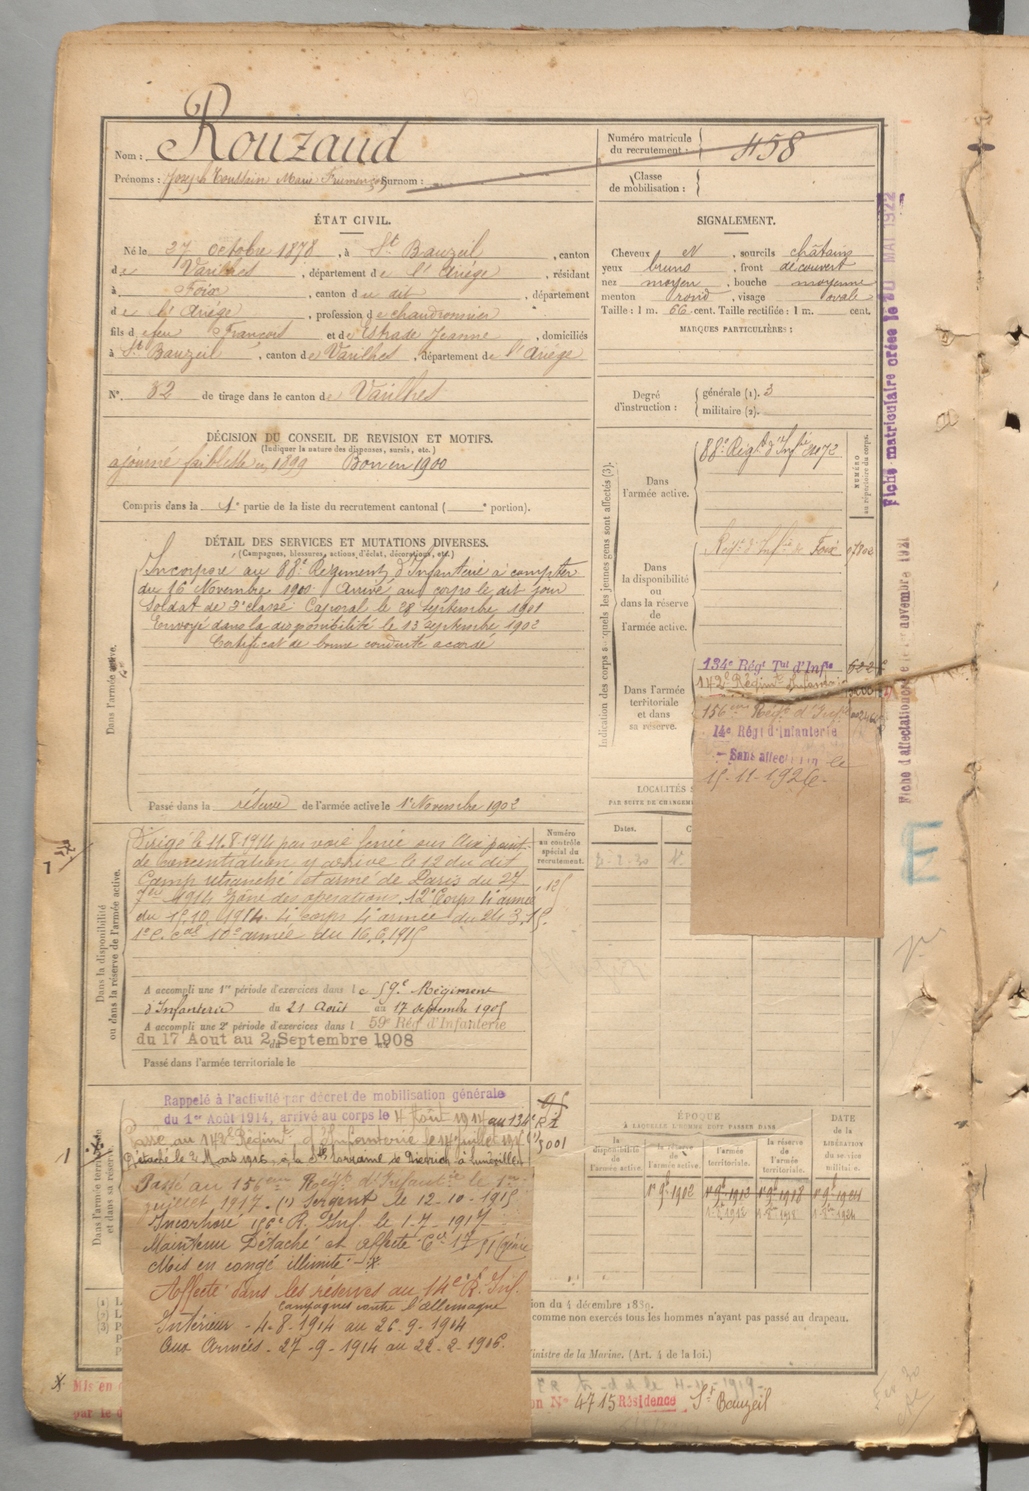 Nom : Rouzaud
Numéro matricule du recrutement : 458
Prénoms : Joseph Toussain Marie Surnom :
Classe de mobilisation :
ÉTAT CIVIL.
Né le 27 octobre 1878, à St Bauzeil, canton
de Varilhes, département de l'Ariège, résidant
à Foix, canton du dit, département
de l'Ariège, profession de chaudronnier
fils de feu François et de Estrade Jeanne, domiciliés
à St Bauzeil, canton de Varilhes, département de l'Ariège
N°. 82 de tirage dans le canton de Varilhes
SIGNALEMENT.
Cheveux N, sourcils châtains
yeux bruns, front découvert
nez moyen, bouche moyenne
menton rond, visage ovale
Taille : 1 m. 66 cent. Taille rectifiée : 1 m. cent.
MARQUES PARTICULIÈRES :
Degré d'instruction : générale (1). 3
militaire (2).
DÉCISION DU CONSEIL DE REVISION ET MOTIFS.
(Indiquer la nature des dispenses, sursis, etc.)
ajourné faiblesse en 1899 Bon en 1900
Compris dans la 1e partie de la liste du recrutement cantonal ( e portion).
DÉTAIL DES SERVICES ET MUTATIONS DIVERSES.
(Campagnes, blessures, actions d'éclat, décorations, etc.)
Dans l'armée active.
Incorporé au 88e Régiment d'Infanterie à compter
du 16 Novembre 1900 Arrivé au corps le dit jour
Soldat de 2e classe. Caporal le 28 septembre 1901
Envoyé dans la disponibilité le 13 septembre 1902
Certificat de bonne conduite accordé
Passé dans la réserve de l'armée active le 1er Novembre 1902
Indication des corps auxquels les jeunes gens sont affectés (3).
NUMÉRO au répertoire du corps.
Dans l'armée active.
88e Régt d'Infie
Dans la disponibilité ou dans la réserve de l'armée active.
Régt d'Infie de Foix
Dans l'armée territoriale et dans sa réserve.
134e Régt Tal d'Infie
142e Régimt Infanterie
156ème Régt d'Inf
14e Régt d'Infanterie
Sans affectation le
15-11-1926
Fiche matriculaire créée le 10 MAI 1922
Fiche d'affectation créée le 1er novembre 1921
E
LOCALITÉS
PAR SUITE DE CHANGEM
Dates.
Dans la disponibilité ou dans la réserve de l'armée active.
Numéro au contrôle spécial du recrutement.
Dirigé le 11.8.1914 par voie ferrée sur
de Concentration y arrive le 12 du dit
Camp retranché et armé de Paris du 27
7bre 1914 Zone des opérations. 12e Corps 4e armée
du 15.10.1914. 4e Corps 4e armée du 24.3.15.
10e armée du 16.6.1915
A accompli une 1re période d'exercices dans le 59e Régiment
d'Infanterie du 21 Août au 17 septembre 1905
A accompli une 2e période d'exercices dans l 59e Rég d'Infanterie
du 17 Aout au 2 Septembre 1908
Passé dans l'armée territoriale le
Dans l'armée territoriale et dans sa réserve
Rappelé à l'activité par décret de mobilisation générale
du 1er Août 1914, arrivé au corps le 4 Août 1914 au 134e R.t
Passé au 142e Régimt d'Infanterie le 14 juillet 1915 (1)
Détaché le 2 Mars 1916, à la Sté Lorraine de Dietrich à Lunéville
Passé au 156ème Régt d'Infanterie le 1er
juillet 1917. (1) Sergent le 12-10-1915
Incorporé 156e R. Inf. le 1-7-1917
Maintenu Détaché et affecté
Mis en congé illimité
Affecté dans les réserves au 14e R. Inf.
Campagnes contre l'allemagne
Intérieur - 4-8-1914 au 26-9-1914
Aux Armées - 27-9-1914 au 22-2-1916.
ÉPOQUE
À LAQUELLE L'HOMME DOIT PASSER DANS
la disponibilité de l'armée active.
la réserve de l'armée active.
l'armée territoriale.
la réserve de l'armée territoriale.
DATE de la LIBÉRATION du service militaire.
ion du 4 décembre 1889.
comme non exercés tous les hommes n'ayant pas passé au drapeau.
Ministre de la Marine. (Art. 4 de la loi.)
Mis en
par le d
on N° 4715 Résidence St Bauzeil